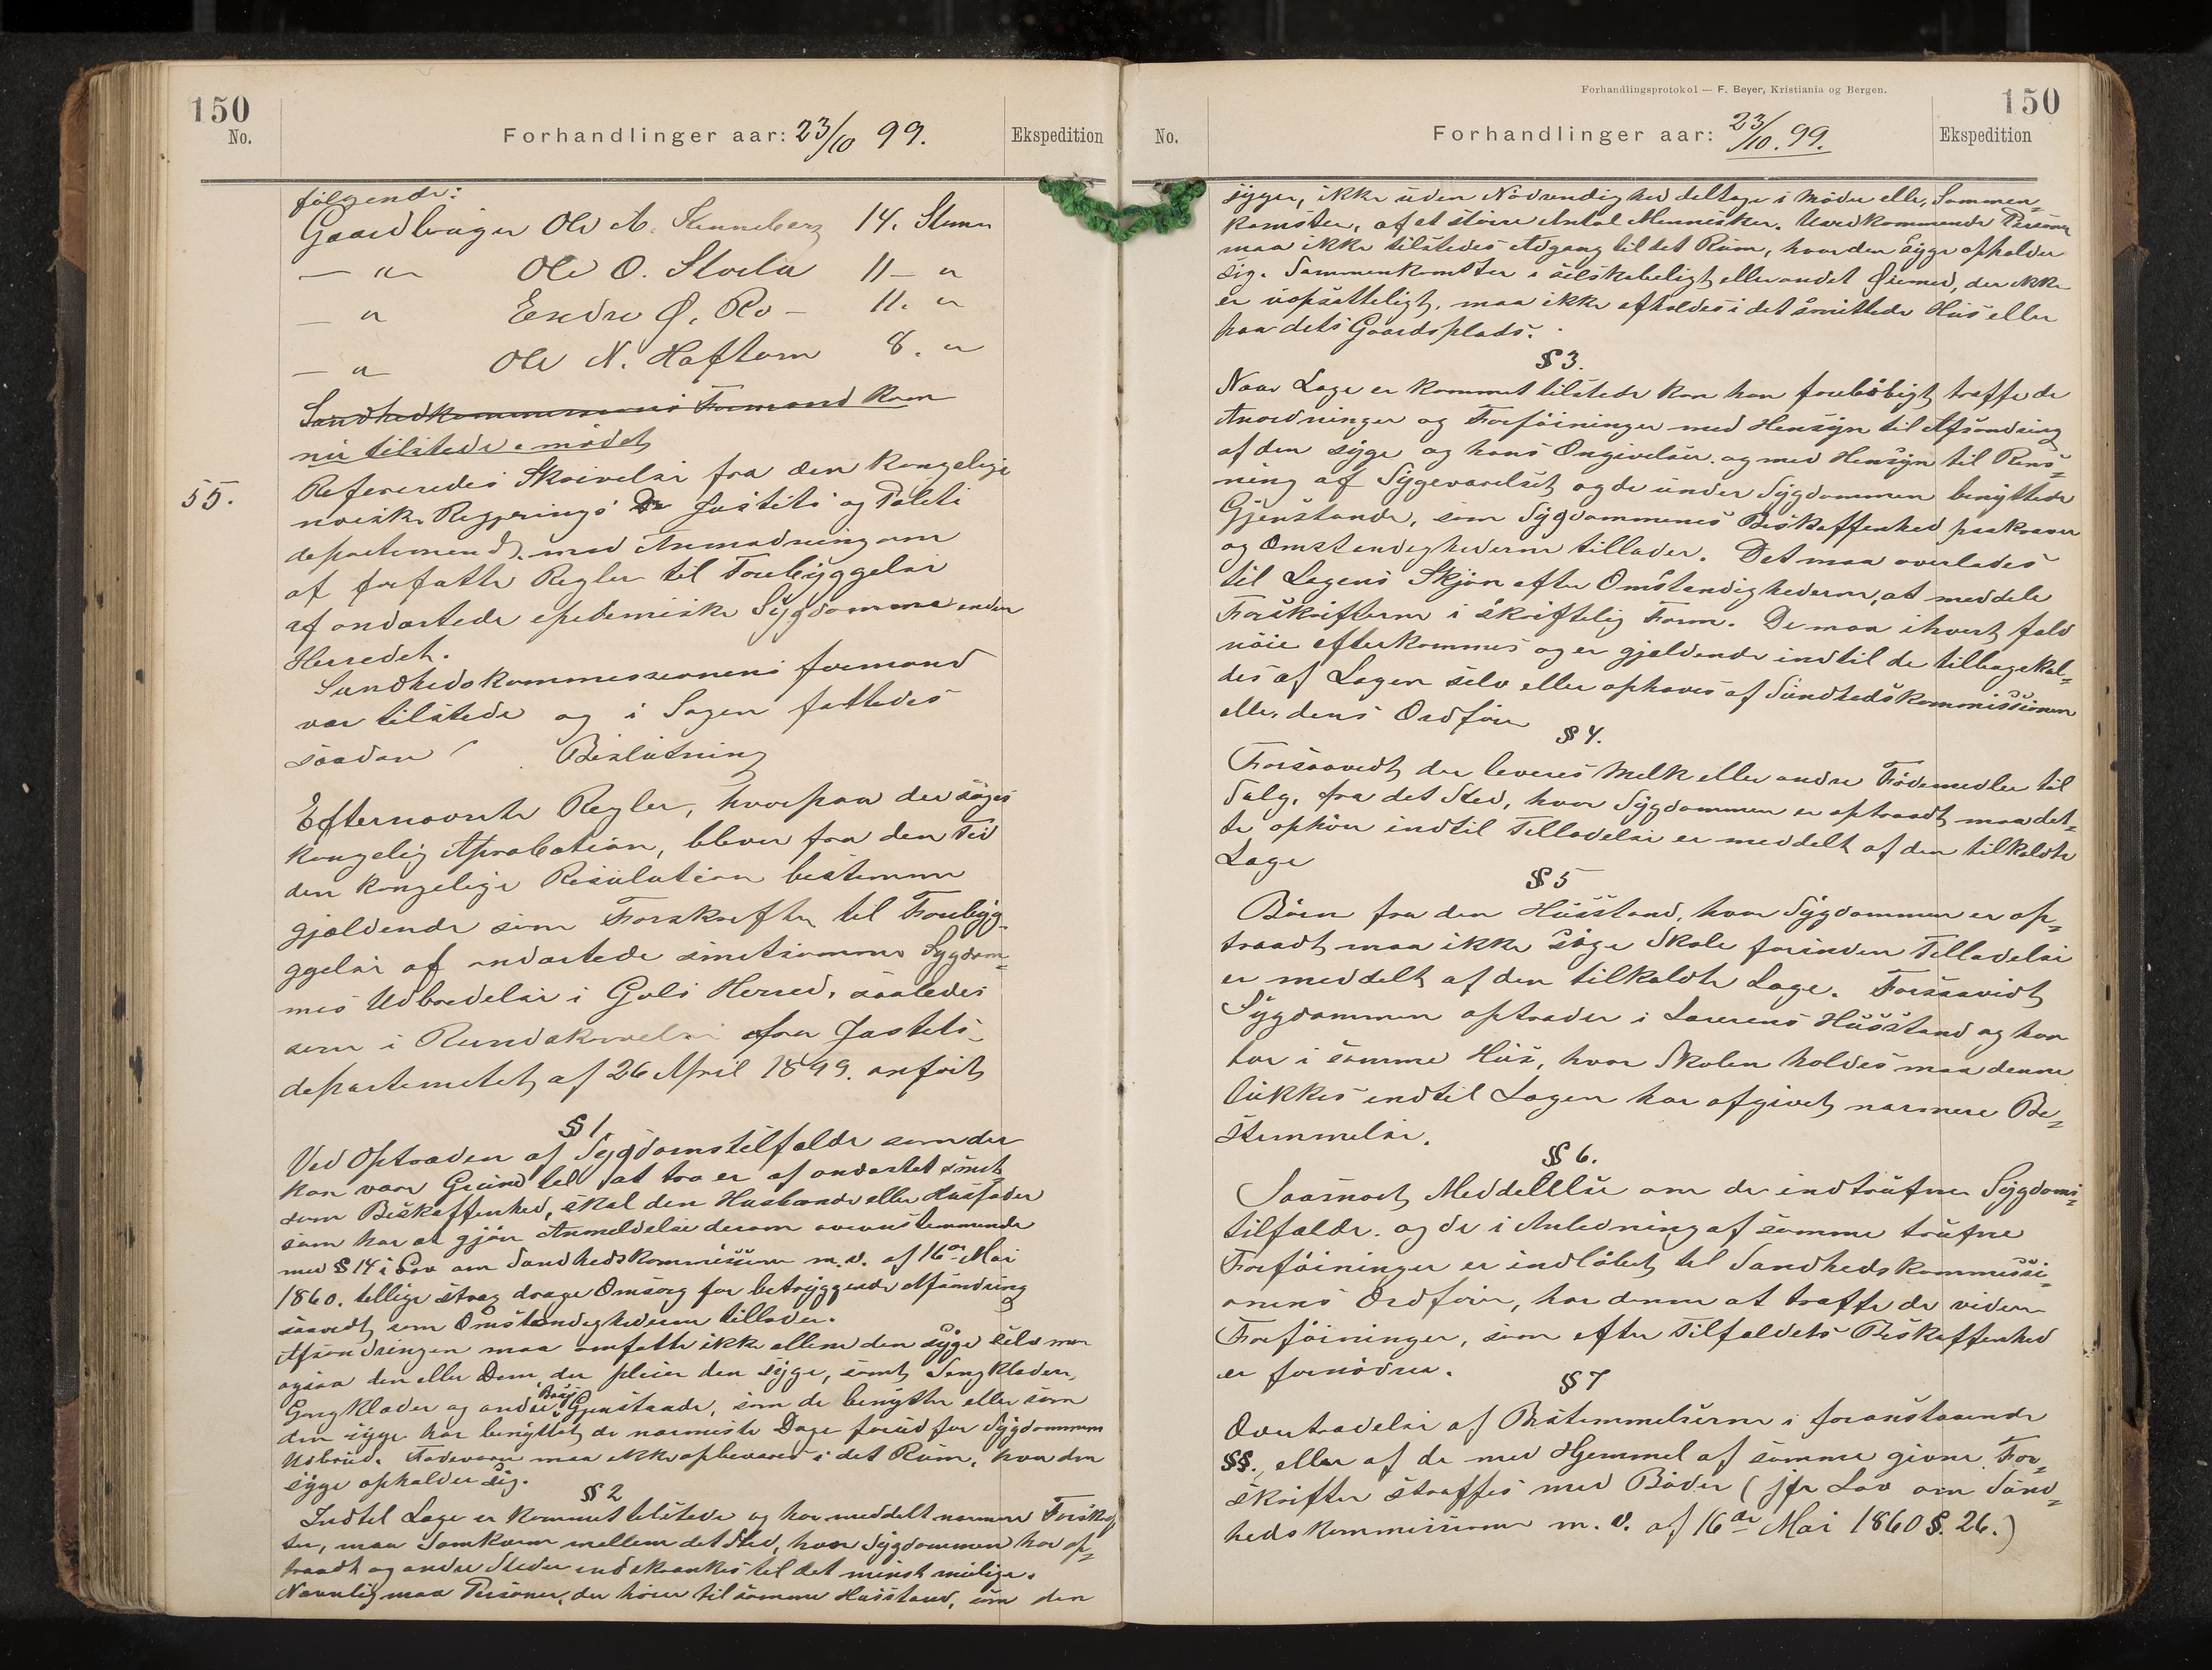 150
No.
Forhandlinger aar: 23/10 99.
Ekspedition
følgende:
Gaardbruger Ole A. Stenneberg 14. Stemm
— " Ole O. Storla 11 — "
— " Endre Ø. Ro — 11. "
— " Ole N. Haftorn 8. "
Sundhedkommissionens Formand kom
nu tilstede i mødet
55.
Refereredes Skrivelse fra den kongelige
norske Regjerings Justits og Politi
departement, med Anmodning om
at forfatte Regler til Forebyggelse
af ondartede epedemiske Sygdomme inden
Herredet.
Sundhedskommissionens formand
var tilstede og i Sagen fattedes
saadan Beslutning
Efternævnte Regler, hvorpaa der søges
kongelig Aprobation, bliver fra den Tid
den kongelige Resolution bestemmer
gjældende som Forskrifter til Forebyg-
ggelse af ondartede smitsomme Sygdom-
mes Udbredelse i Gols Herred, saaledes
som i Rundskrivelse fra Justits-
departemetet af 26 April 1899. anført
§ 1.
Ved Optræden af Sygdomstilfælde som der
kan være Grund til at tro er af ondartet smit
som Beskaffenhed, skal den Husbonde eller Husfader
som har at gjøre Anmeldelse derom overensstemmende
med § 14 i Lov om Sundhedskommissioner m.v. af 16de Mai
1860. tillige strax drage Omsorg for betryggende Afsondring
saavidt som Omstændighederne tillader.
Afsondringen maa omfatte ikke allene den syge selv men
ogsaa den eller Dem, der pleier den syge, samt Sengklæder,
Gangklæder og andre Brugs Gjenstande, som de benytter eller som
den syge har benyttet de nærmeste Dage forud for Sygdommens
Udbrud. Fødevarer maa ikke opbevares i det Rum, hvor den
syge opholder sig.
§ 2
Indtil Læge er kommet tilstede og har meddelt nærmere Forskrif
ter, maa Samkvem mellem det Sted, hvor Sygdommen har op-
traadt og andre Steder indskrænkes til det minst mulige.
Navnlig maa Personer, der hører til samme Husstand, som den
Forhandlingsprotokol — F. Beyer, Kristiania og Bergen.
150
No.
Forhandlinger aar: 23/10. 99.
Ekspedition
syge, ikke uden Nødvendighed deltage i Møder eller Sammen-
komster, af et større Antal Mennesker. Uvedkommende Personer
maa ikke tilstedes Adgang til det Rum, hvor den Syge opholder
sig. Sammenkomster i selskabeligt eller andet Øiemed, der ikke
er uopsætteligt, maa ikke afholdes i det smittede Hus eller
paa dets Gaardsplads.
§ 3.
Naar Læge er kommet tilstede kan han foreløbigt træffe de
Anordninger og Forføininger med Hensyn til Afsondring
af den syge og hans Omgivelser og med Hensyn til Rens-
ning af Sygeværelset og de under Sygdommen benyttede
Gjenstande, som Sygdommenes Beskaffenhed paakræver
og Omstændighederne tillader. Det maa overlades
til Lægens Skjøn efter Omstændighederne, at meddele
Forskrifterne i skriftelig Form. De maa ihvert fald
nøie efterkommes og er gjældende indtil de tilbagekal-
des af Lægen selv eller ophæves af Sundhedskommissionen
eller dens Ordfører
§ 4.
Forsaavidt der leveres Melk eller andre Fødemedler til
Salg, fra det Sted, hvor Sygdommen er optraadt maa det-
te ophøre indtil Tilladelse er meddelt af den tilkaldte
Læge
§ 5
Børn fra den Husstand, hvor Sygdommen er op-
traadt maa ikke søge Skole forinden Tilladelse
er meddelt af den tilkaldte Læge. Forsaavidt
Sygdommen optræder i Lærerens Husstand og han
bor i samme Hus, hvor Skolen holdes maa denne
lukkes indtil Lægen har afgivet nærmere Be-
stemmelse.
§ 6.
Saasnart Meddelelse om de indtrufne Sygdoms-
tilfælde og de i Anledning af samme trufne
Forføininger er indløbet til Sundhedskommissi-
onens Ordfører, har denne at træffe de videre
Forføininger, som efter Tilfældets Beskaffenhed
er fornødne.
§ 7
Overtrædelse af Bestemmelserne i foranstaaende
§§., eller af de med Hjemmel af samme givne For-
skrifter straffes med Bøder (jfr Lov om Sund-
hedskommissioner m.v. af 16de Mai 1860 §. 26.)